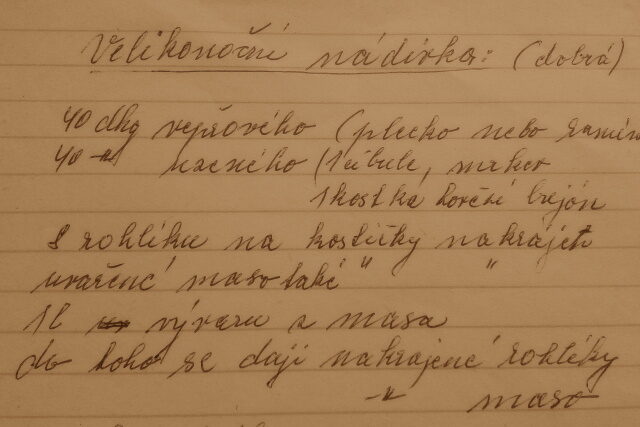 Velikonoční nádivka: (dobrá)
40 dkg vepřového (plecko nebo ramín
40 -"- uzeného (1 cibule, mrkev
1 kostka hovězí bujón
8 rohlíku na kostičky nakrájet
uvařené maso také " "
1l vývaru z masa
do toho se dají nakrájené rohlíky
-"- maso